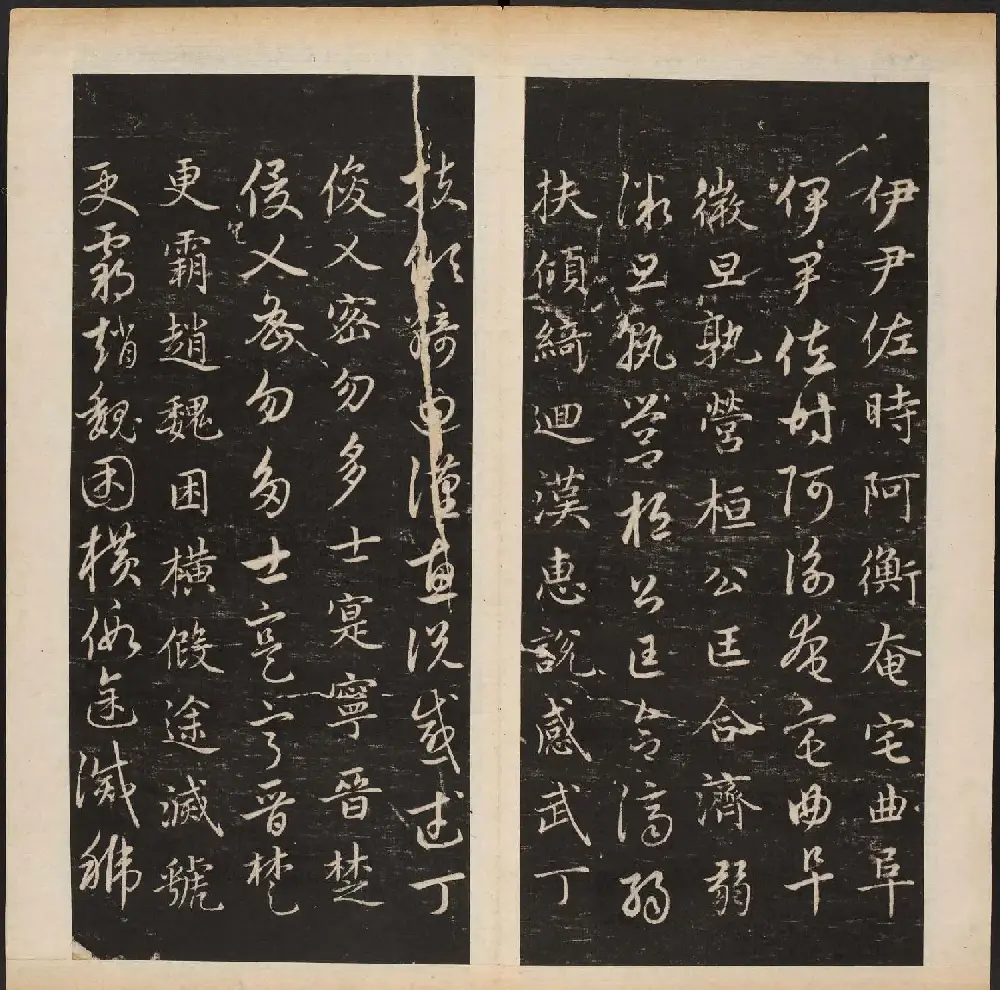 伊尹佐時阿衡奄宅曲阜
伊尹佐時阿衡奄宅曲阜
微旦孰營桓公匡合濟弱
微旦孰營桓公匡合濟弱
扶傾綺迴漢惠說感武丁
扶傾綺迴漢惠說感武丁
俊乂密勿多士寔寧晉楚
俊乂密勿多士寔寧晉楚
更霸趙魏困橫假途滅虢
更霸趙魏困橫假途滅虢